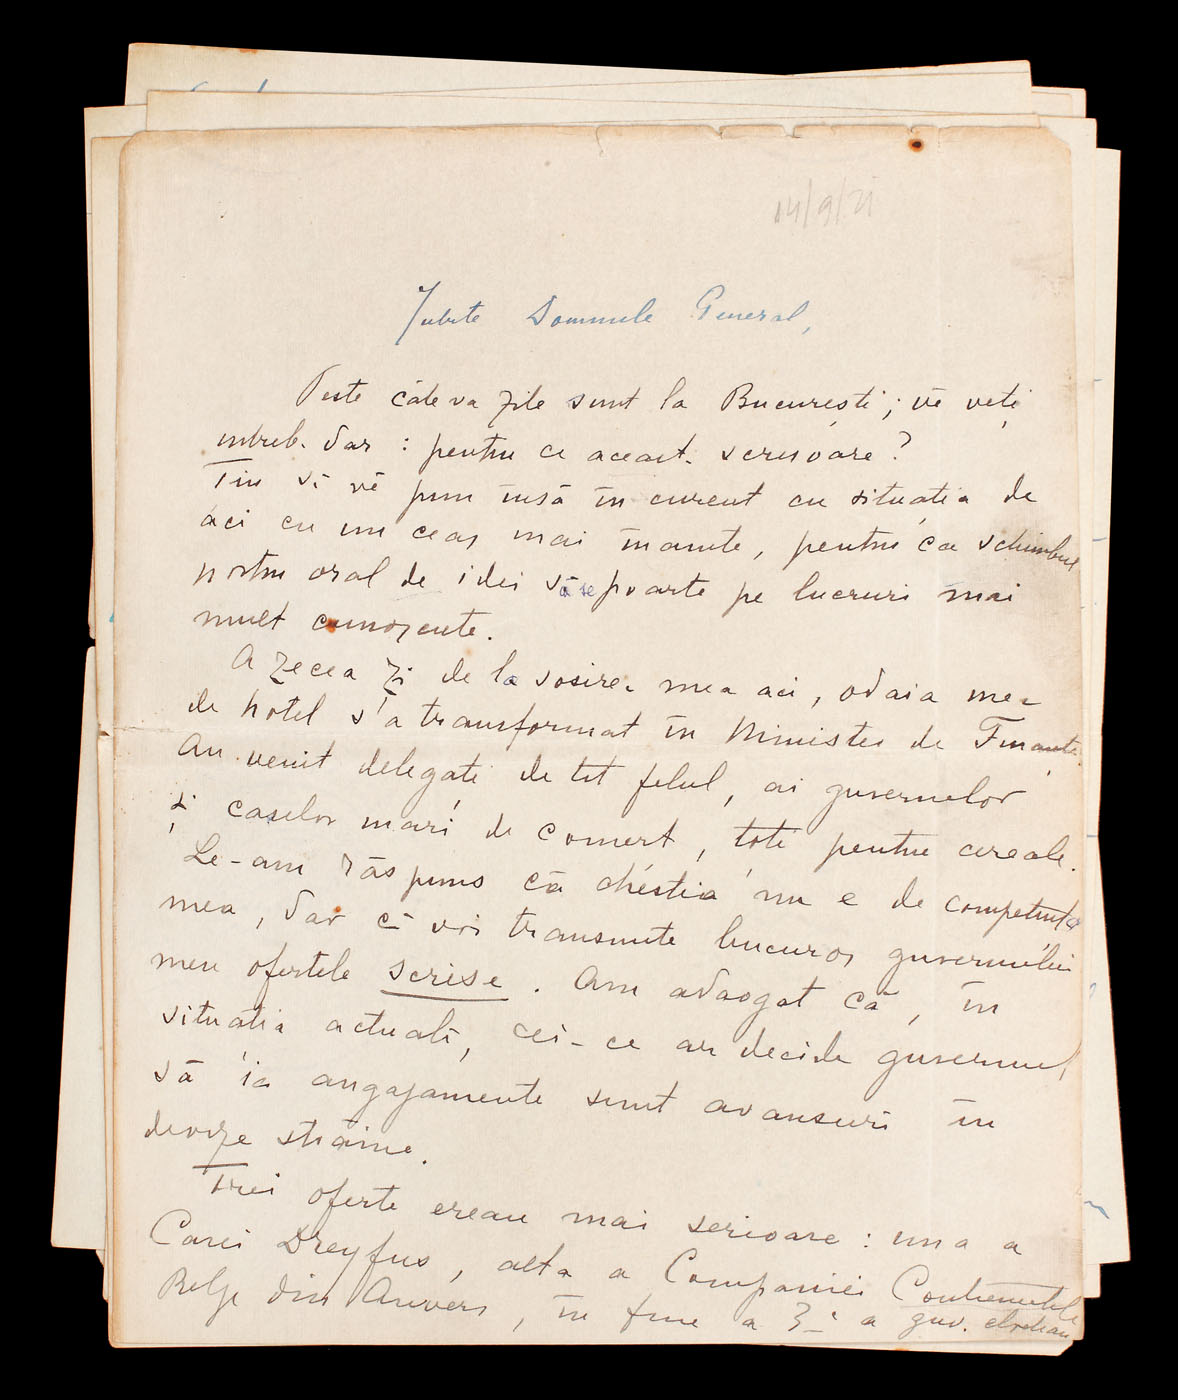 14/9/21
Iubite Domnule General,
Peste câteva zile sunt la București; vĕ veți
întreb. dar: pentru ce aceast. scrisoare?
Țin să vĕ pun însă în curent cu situația de
aci cu un ceas mai înainte, pentru ca schimbul
nostru oral de idei să se poarte pe lucruri mai
mult cunoscute.
A zecea zi de la sosirea mea aci, odaia mea
de hotel s'a transformat în Minister de Finanțe.
Au venit delegați de tot felul, ai guvernelor
și caselor mari de comerț, toți pentru cereale.
Le-am răspuns că chestia nu e de competința
mea, dar că voi transmite bucuros guvernului
meu ofertele scrise. Am adaogat că, în
situația actuală, cei-ce ar decide guvernul
să ia angajamente sunt avansuri în
devize străine.
Trei oferte ereau mai serioase: una a
Casei Dreyfus, alta a Companiei Continentale
Belge din Anvers, în fine a 3-a a guv. elvețian